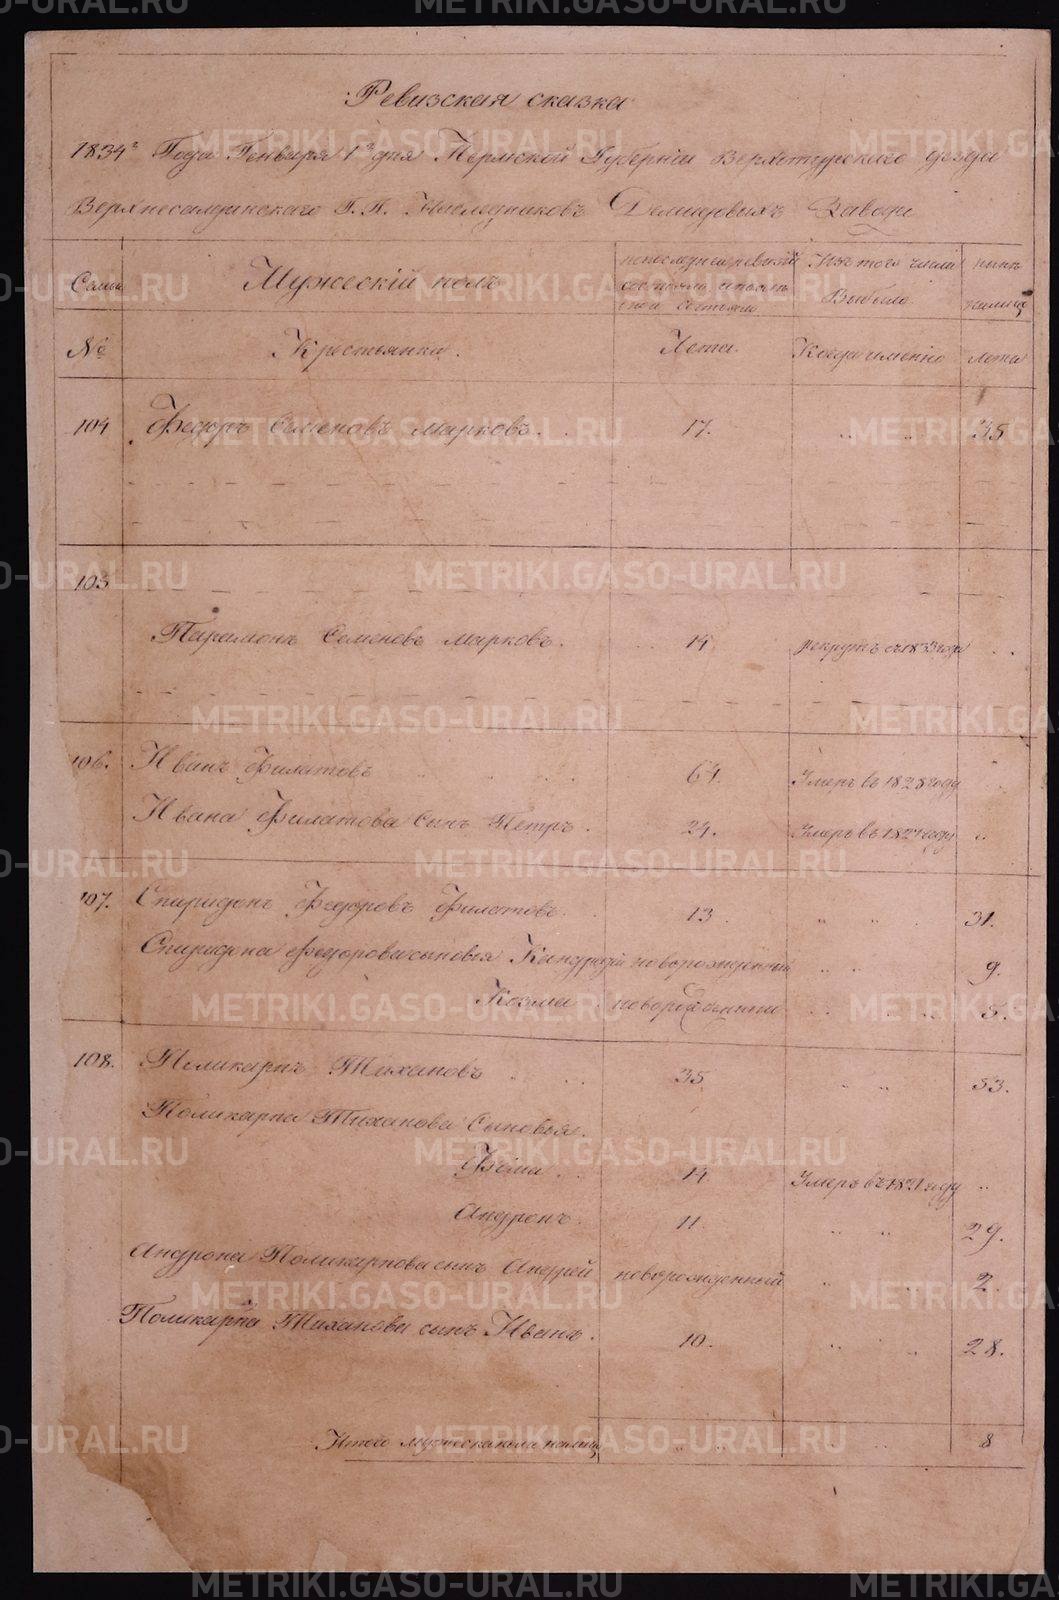 Ревизская сказка
1834го Года Генваря 1го дня Пермской Губернiи Верхотурского уезда
Верхнесалдинского Г.Г. Наследниковъ Демидовыхъ Завода
Семьи
Мужескiй полъ
по последней ревизiи состояло и после
Изъ того числа Выбыло
ныне налицо
№
Крестьянка.
Лета.
Когда именно
лета
104 Федоръ Семеновъ Марковъ. 17. „ „ 35
105
Парамонъ Семеновъ Марковъ. 14 рекрутъ съ 1833 года
106. Иванъ Филатовъ 64. Умеръ въ 1828 году
Ивана Филатова Сынъ Петръ. 24. Умеръ въ 1827 году „
107. Спиридонъ Федоровъ Филатовъ. 13. „ „ 31.
Спиридона Федорова сыновья Кандратiй новорожденный „ „ 9.
Козма новорожденный 5.
108. Поликарпъ Тихановъ 35 „ „ 53.
Поликарпа Тиханова Сыновья.
Фома 14 Умеръ въ 1821 году „
Андронъ. 11. „ „ 29.
Андрона Поликарпова сынъ Андрей новорожденный „ „ 2.
Поликарпа Тиханова сынъ Иванъ. 10. „ „ 28.
Итого мужеска пола налицо „ „ „ 8
METRIKI.GASO-URAL.RU